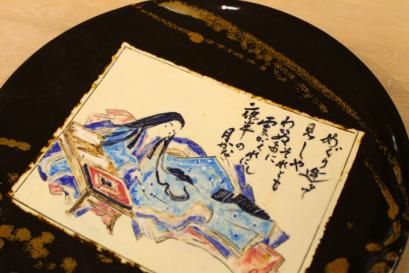 めぐり逢て
見しや
わかぬまに
雲がくれし
夜半の
月かな